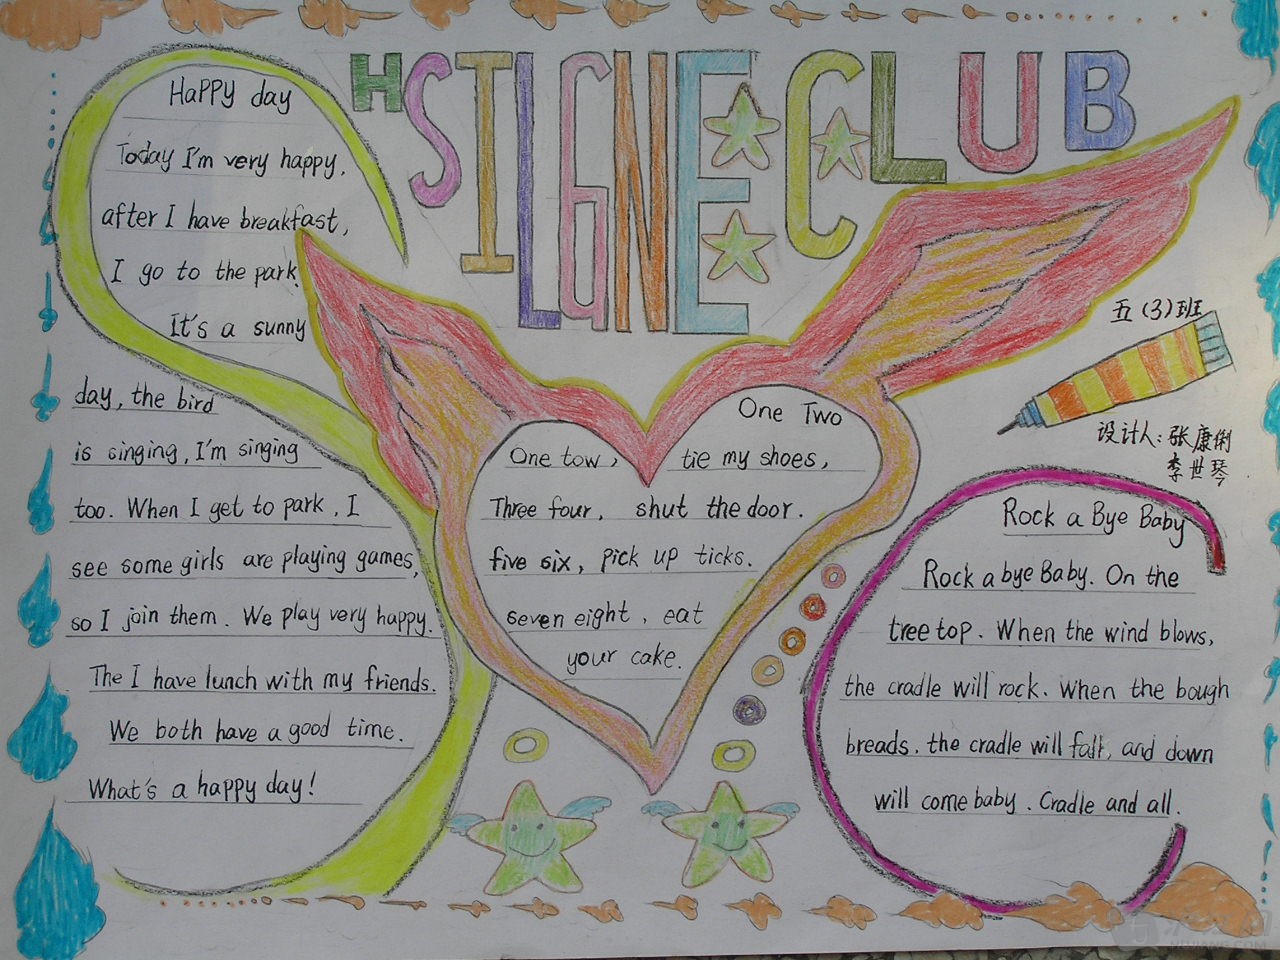 HSILGNE CLUB
Happy day
Today I'm very happy,
after I have breakfast,
I go to the park.
It's a sunny
day, the bird
is singing, I'm singing
too. When I get to park, I
see some girls are playing games,
so I join them. We play very happy.
The I have lunch with my friends.
We both have a good time.
What's a happy day!
One Two
One tow, tie my shoes,
Three four, shut the door.
five six, pick up ticks.
seven eight, eat
your cake.
五(3)班
设计人:张康俐
李世琴
Rock a Bye Baby
Rock a bye Baby. On the
tree top. When the wind blows,
the cradle will rock. When the bough
breads. the cradle will fall, and down
will come baby. Cradle and all.